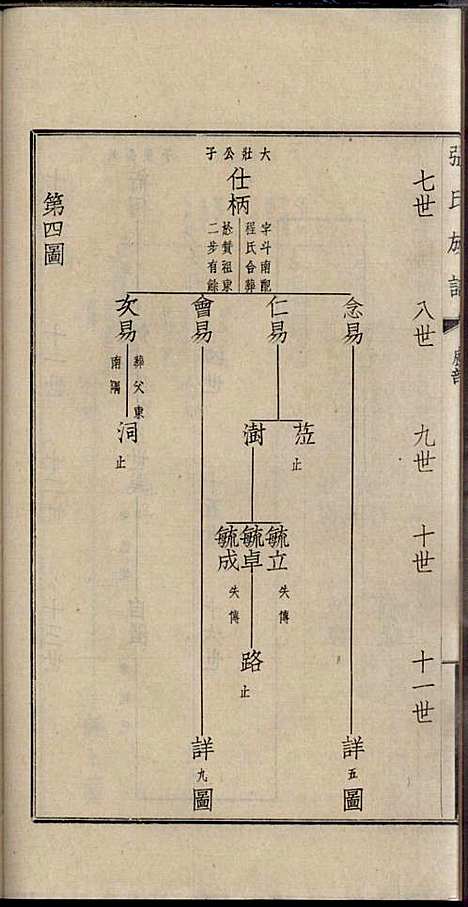 張氏族譜
七世
八世
九世
十世
十一世
大壯公子
仕柄
字斗南配
程氏合葬
於贊祖東
二步有餘
念易
仁易
會易
文易
葬父東
南隅
茳
止
澍
洞
止
毓立
失傳
毓卓
毓成
失傳
路
止
詳五圖
詳九圖
第四圖